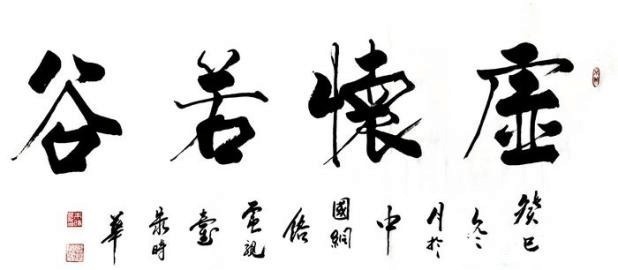 虛懷若谷
癸巳冬月於中國網絡電視臺時華